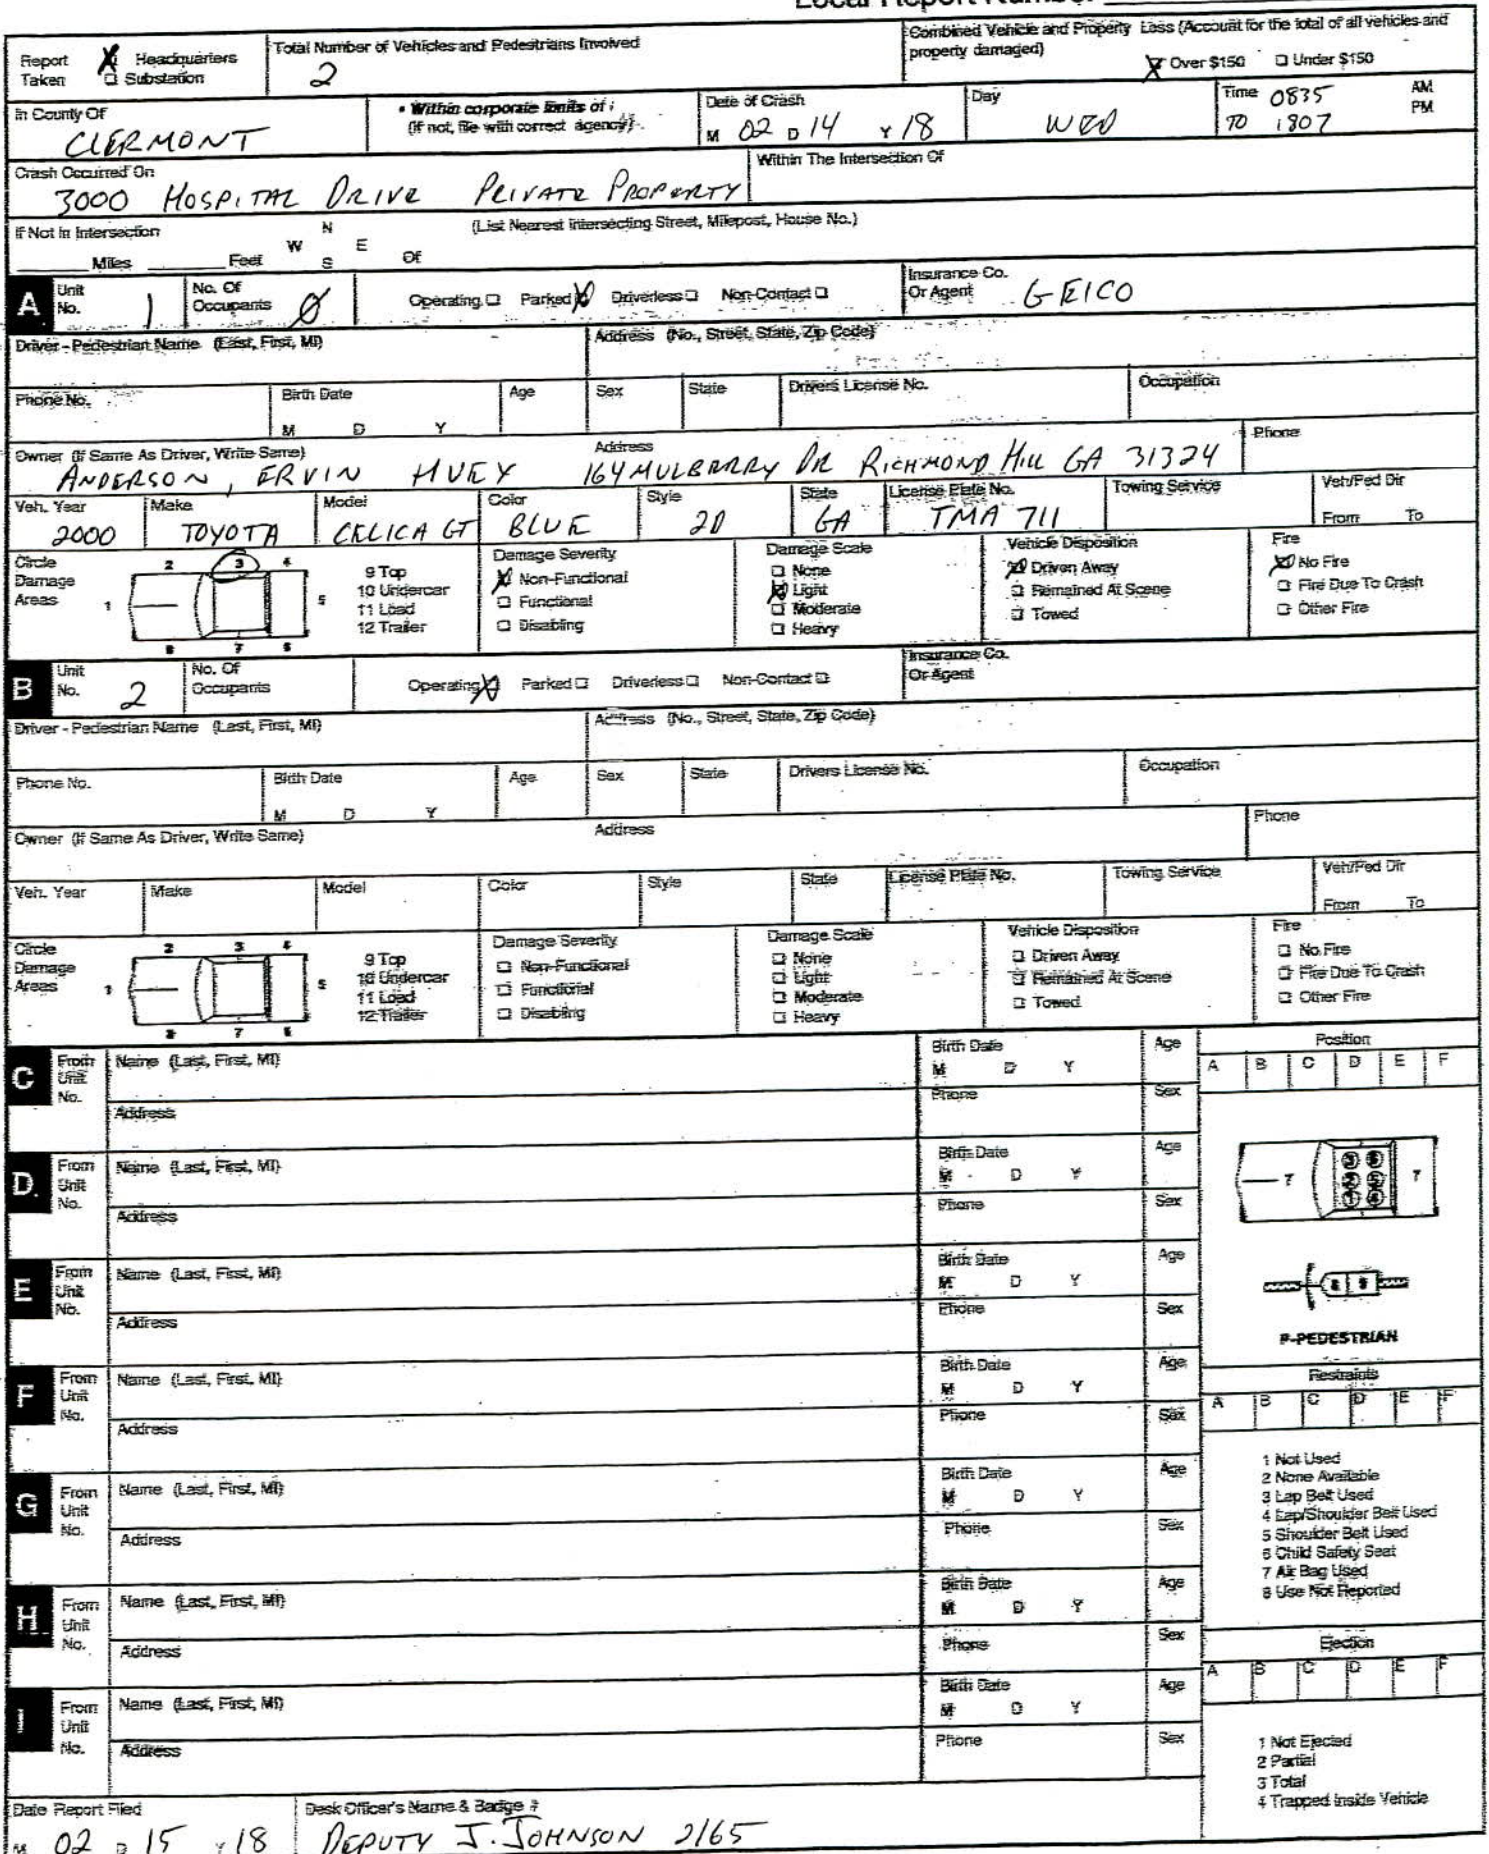 Local Report Number
Report Taken X Headquarters ☐ Substation
Total Number of Vehicles and Pedestrians Involved
2
Combined Vehicle and Property Loss (Account for the total of all vehicles and property damaged)
X Over $150 ☐ Under $150
In County Of
CLERMONT
• Within corporate limits of :
(If not, file with correct agency)
Date of Crash
M 02 D 14 Y 18
Day
WED
Time 0835 AM
TO 1807 PM
Crash Occurred On
3000 HOSPITAL DRIVE PRIVATE PROPERTY
Within The Intersection Of
If Not in Intersection
(List Nearest Intersecting Street, Milepost, House No.)
Miles Feet N W E S Of
A Unit No. 1
No. Of Occupants 0
Operating ☐ Parked X Driverless ☐ Non-Contact ☐
Insurance Co. Or Agent GEICO
Driver - Pedestrian Name (Last, First, MI)
Address (No., Street, State, Zip Code)
Phone No. Birth Date M D Y Age Sex State Drivers License No. Occupation
Owner (If Same As Driver, Write Same) Address Phone
ANDERSON, ERVIN HUEY 164 MULBRRRY DR RICHMOND HILL GA 31324
Veh. Year Make Model Color Style State License Plate No. Towing Service Veh/Ped Dir
2000 TOYOTA CELICA GT BLUE 2D GA TMA 711 From To
Circle Damage Areas
1 2 3 4 5 6 7 8
9 Top
10 Undercar
11 Load
12 Trailer
Damage Severity
X Non-Functional
☐ Functional
☐ Disabling
Damage Scale
☐ None
X Light
☐ Moderate
☐ Heavy
Vehicle Disposition
X Driven Away
☐ Remained At Scene
☐ Towed
Fire
X No Fire
☐ Fire Due To Crash
☐ Other Fire
B Unit No. 2
No. Of Occupants
Operating X Parked ☐ Driverless ☐ Non-Contact ☐
Insurance Co. Or Agent
Driver - Pedestrian Name (Last, First, MI)
Address (No., Street, State, Zip Code)
Phone No. Birth Date M D Y Age Sex State Drivers License No. Occupation
Owner (If Same As Driver, Write Same) Address Phone
Veh. Year Make Model Color Style State License Plate No. Towing Service Veh/Ped Dir
From To
Circle Damage Areas
1 2 3 4 5 6 7 8
9 Top
10 Undercar
11 Load
12 Trailer
Damage Severity
☐ Non-Functional
☐ Functional
☐ Disabling
Damage Scale
☐ None
☐ Light
☐ Moderate
☐ Heavy
Vehicle Disposition
☐ Driven Away
☐ Remained At Scene
☐ Towed
Fire
☐ No Fire
☐ Fire Due To Crash
☐ Other Fire
C From Unit No. Name (Last, First, MI) Birth Date M D Y Age
Address Phone Sex
D. From Unit No. Name (Last, First, MI) Birth Date M D Y Age
Address Phone Sex
E From Unit No. Name (Last, First, MI) Birth Date M D Y Age
Address Phone Sex
F From Unit No. Name (Last, First, MI) Birth Date M D Y Age
Address Phone Sex
G From Unit No. Name (Last, First, MI) Birth Date M D Y Age
Address Phone Sex
H From Unit No. Name (Last, First, MI) Birth Date M D Y Age
Address Phone Sex
I From Unit No. Name (Last, First, MI) Birth Date M D Y Age
Address Phone Sex
Position
A B C D E F
7 3 6 2 5 1 4 7
8 9
P-PEDESTRIAN
Restraints
A B C D E F
1 Not Used
2 None Available
3 Lap Belt Used
4 Lap/Shoulder Belt Used
5 Shoulder Belt Used
6 Child Safety Seat
7 Air Bag Used
8 Use Not Reported
Ejection
A B C D E F
1 Not Ejected
2 Partial
3 Total
4 Trapped Inside Vehicle
Date Report Filed
M 02 D 15 Y 18
Desk Officer's Name & Badge #
DEPUTY J. JOHNSON 2165